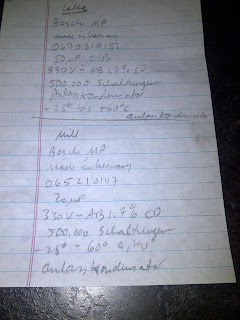 Lathe
Bosch MP
made in Germany
0670310151
50µF ±10%
330V-AB 1.7% ED
500,000 Schaltungen
Anlasskondensator
-25° bis +60°C
anlaskondensator
Mill
Bosch MP
made in Germany
065210147
20µF
330V-AB 1.7% ED
500,000 Schaltungen
-25° - 60°
anlasskondensator